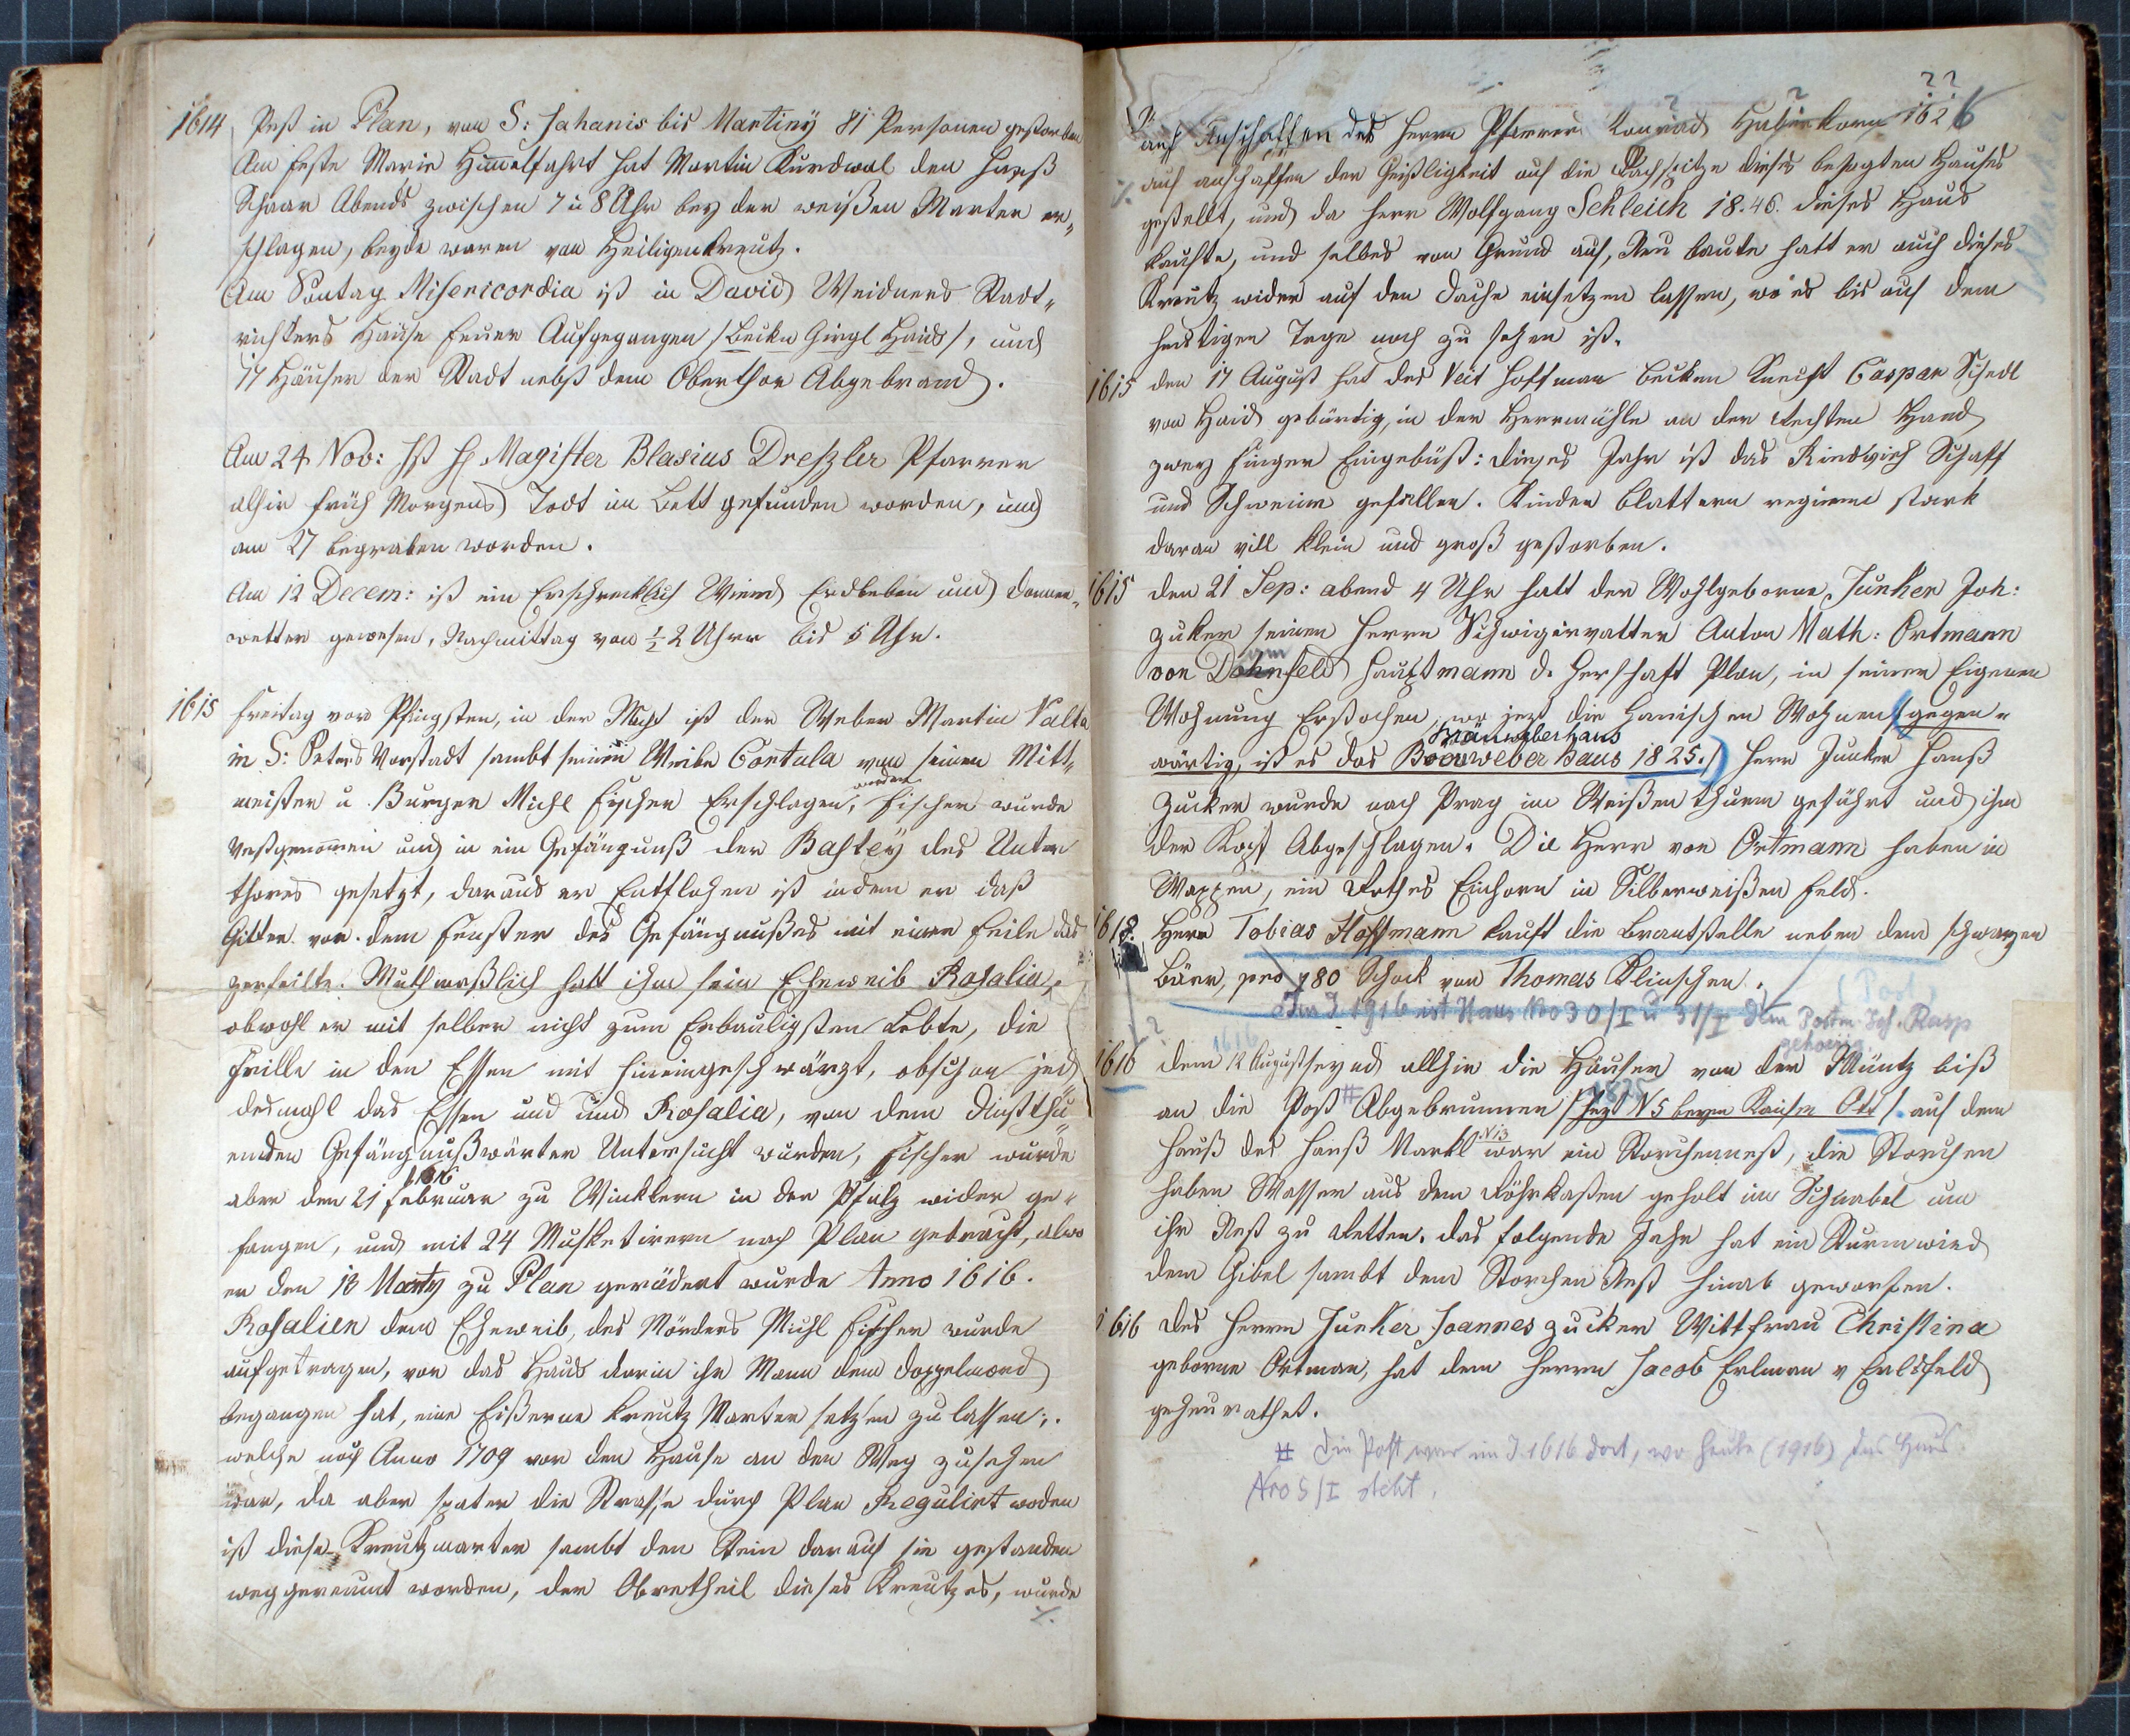 1614 Pest in Plan, von S: Johanis bis Martiny 81 Personen gestorben
Am Feste Marie Himelfahrt hat Martin Kurdwal den Hanß
Schaar Abends zwischen 7 u 8 Uhr bey der weißen Marter er„
schlagen, beyde waren von Heiligenkreutz.
Am Sontag Misericordia ist in David Weidners Stadt„
richters Hause Feuer Aufgegangen /:Beckn Girgl Haus/, und
17 Häuser der Stadt nebst dem Oberthor Abgebrand.
Am 24 Nov: Ist H Magister Blasius Dreszler Pfarrer
alhir früh Morgens Todt im Bett gefunden worden, und
am 27 begraben worden.
Am 12 Decem: ist ein Erschrecklich Wiend Erdbeben und Donner„
wetter gewesen, Nachmittag von ½ 2 Uhr bis 5 Uhr.
1615 Freitag vor Pfingsten, in der Nacht ist der Weber Martin Valta
in S: Peters Vorstadt sambt seinen Weibe Contula von seinen Mitt„
meister u. Burger Michl Fischer Erschlagen, worden Fischer wurde
Vestgenommen und in ein Gefängnuß der Bastey des Unter
thores gesetzt, daraus er Entflohen ist indem er daß
Gitter vor dem Fenster des Gefängnußes mit einer Feile das
zerfeilte. Muthmaßlich hatt ihm sein Eheweib Rosalia,
obwohl er mit selber nicht zum Erbauligsten Lebte, die
Feille in den Essen mit hineingeschwärzt, obschon jed
desmahl das Essen und und Rosalia, von dem dinstthu„
enden Gefängnußwärter Untersucht wurden, Fischer wurde
aber den 21 Februar 1616 zu Wincklern in der Pfalz wider ge„
fangen, und mit 24 Musketirern nach Plan gebracht, alwo
er den 13 Marty zu Plan gerädert wurde Anno 1616.
Rosalien dem Eheweib, des Mörders Michl Fischer wurde
aufgetragen, vor das Haus darin ihr Mann dem Doppelmord
begangen hat, eine Eißerne Kreutz Marter setzen zu lassen,.
welche noch Anno 1709 vor den Hause an den Weg zusehen
war, da aber spater die Strasse durch Plan Regulirt woden
ist diese Kreutzmarter sambt den Stein darauf sie gestanden
weggereumt worden, der Obretheil dieses Kreutzes, wurde
auf Anschaffen des Herrn Pfarrer Konrad Haberkorn 1626
auf anschaffen der Geistligkeit auf die Dachspitze dieses besagten Hauses
gestellt, und da Herr Wolfgang Schleich 18.46. dieses Haus
kaufte, und selbes von Grund auf, Neu baute hatt er auch dieses
Kreutz wider auf den Dache einsetzen lassen, wo es bis auf dem
heutigen Tage noch zu sehen ist.
1615 den 17 August hat des Veit Hoffman Becken Knecht Caspar Schedl
von Haid gebürtig, in der Herrmühle an der rechten Hand
zwey Finger Eingebüst: dieses Jahr ist das Riendvieh Schaff
und Schweine gefallen. Kinder Blattern regieren stark
daran vill klein und groß gestorben.
1615 den 21 Sep: abend 4 Uhr hatt der Wohlgeborne Junker Joh:
Zuker seinen Herrn Schwigervatter Anton Math: Ortmann
von Dohnfeld Hauptmann d. Herschaft Plan, in seiner Eigenen
Wohnung Erstochen, wo jezt die Hanischen Wohnen /gegen„
wärtig, ist es das Bräuweber Haus 1825./ Herr Juncker Hanß
Bräuweberhaus
Zucker wurde nach Prag im Weißen Thurm geführt und ihm
der Kopf Abgeschlagen. Die Herr von Ortmann haben in
Wappen, ein Rothes Einhorn in Silberweißen Feld.
1618. Herr Tobias Hoffmann kauft die Brantstelle neben dem schwarzen
Bären, pro 780 Schock von Thomas Klinschen.
(Post)
Im J 1916 ist Haus No 30/I u 31/I dem Postm. Jos. Rasp
gehoerig.
1616
1616 dem 12 August seynd allhir die Häuser von der Müntz biß
an die Post # Abgebrunnen /:Jezt N 5 beym Kaiser Ott/. auf dem
1825
Hauß des Hanß Markl N13 war ein Storchennest, die Storchen
haben Wasser aus dem Röhrkasten geholt im Schnabel um
ihr Nest zu Retten. das folgende Jahr hat ein Sturmwind
dem Gibel sambt dem Storchen Nest hinab geworfen.
1616 des Herrn Junker Joannes Zucker Wittfrau Christina
geborne Ortman, hat dem Herrn Jacob Erlman v Erlsfeld
geheurathet.
# Die Post war im J. 1616 dort, wo heute (1916) das Haus
Nro 5/I steht.